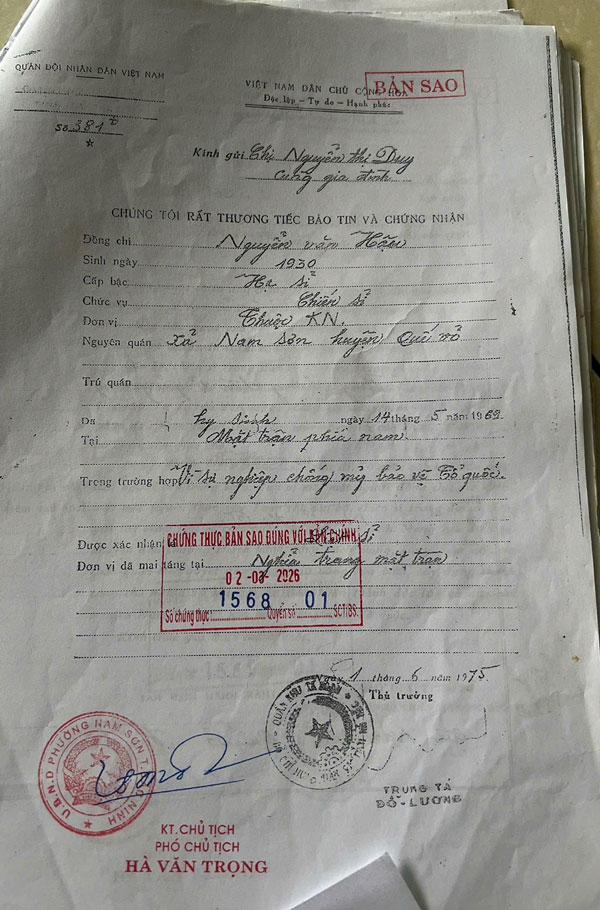 QUÂN ĐỘI NHÂN DÂN VIỆT NAM
VIỆT NAM DÂN CHỦ CỘNG HÒA
BẢN SAO
Độc lập – Tự do – Hạnh phúc
Số 381
Kính gửi Chị Nguyễn thị Duy
cùng gia đình
CHÚNG TÔI RẤT THƯƠNG TIẾC BÁO TIN VÀ CHỨNG NHẬN
Đồng chí Nguyễn văn Hậu
Sinh ngày 1930
Cấp bậc Hạ sĩ
Chức vụ Chiến sĩ
Đơn vị Thuộc KN.
Nguyên quán xã Nam sơn huyện Quế võ
Trú quán
Đã hy sinh ngày 14 tháng 5 năm 1969
Tại Mặt trận phía nam
Trong trường hợp Vì sự nghiệp chống mỹ bảo vệ Tổ quốc.
Được xác nhận sĩ
Đơn vị đã mai táng tại Nghĩa trang mặt trận
CHỨNG THỰC BẢN SAO ĐÚNG VỚI BẢN CHÍNH
2026
1568 01
Số chứng thực Quyển số SCT/BS
Ngày 1 tháng 6 năm 1975
Thủ trưởng
TRUNG TÁ
ĐỖ-LƯƠNG
U.B.N.D PHƯỜNG NAM SƠN T. NINH
QUÂN KHU TẢ NGẠN
KT.CHỦ TỊCH
PHÓ CHỦ TỊCH
HÀ VĂN TRỌNG